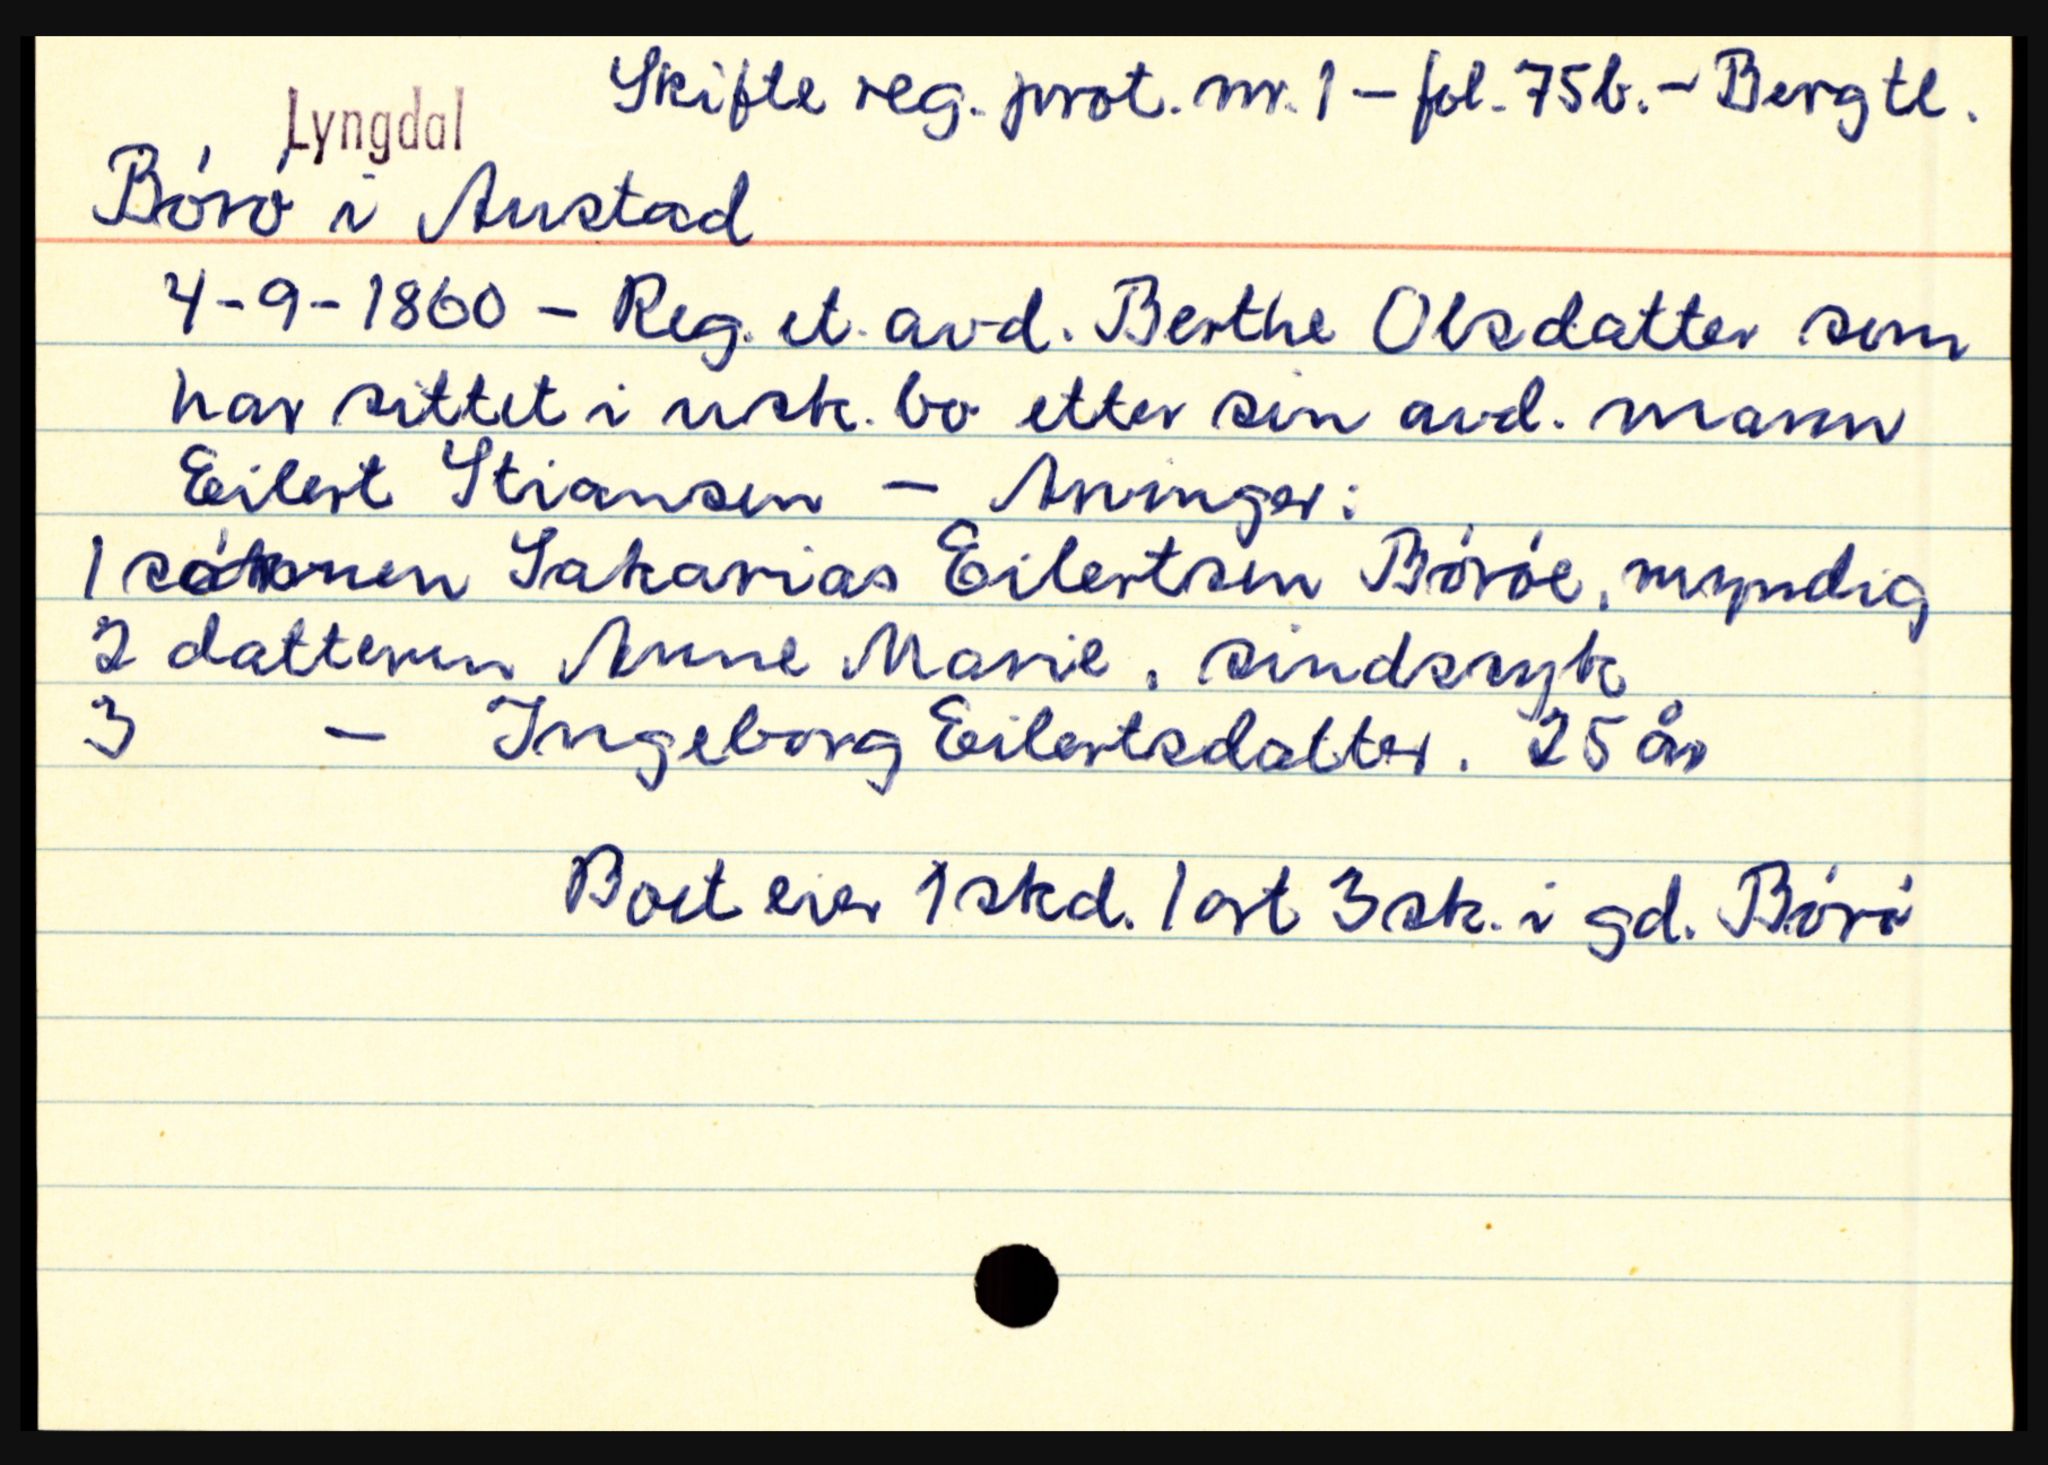 Skifte reg. prot. nr. 1 – fol. 75b. – Berg tl.
Lyngdal
Bóró i Austad
4-9-1860 – Reg. et. avd. Berthe Olsdatter som
har sittet i usk. bo etter sin avd. mann
Eilert Stiansen – Arvinger:
1 sónnen Sakarias Eilertsen Bóróe, myndig
2 datteren Anne Marie, sindssyk
3 – Ingeborg Eilertsdatter. 25 år
Boet eier 1 skd. 1 ort 3 sk. i gd. Bóró